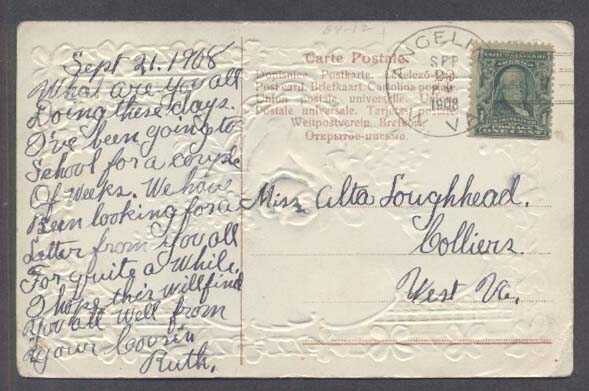 04-12
Sept 21. 1908
What are you all
Doing these days.
I've been going to
School for a couple
Of weeks. We have
Been looking for a
Letter from you all
For quite a while,
I hope this will find
You all well from
Your Cousin
Ruth,
Carte Postale.
Postkarte.
Postcard. Briefkaart. Cartolina postale
Union postale universelle.
Postale universale. Tarjeta postale
Weltpostverein.
Открытое письмо.
SEP
1908
VA
1
ONE CENT
Miss Alta Loughhead.
Colliers.
West Va.